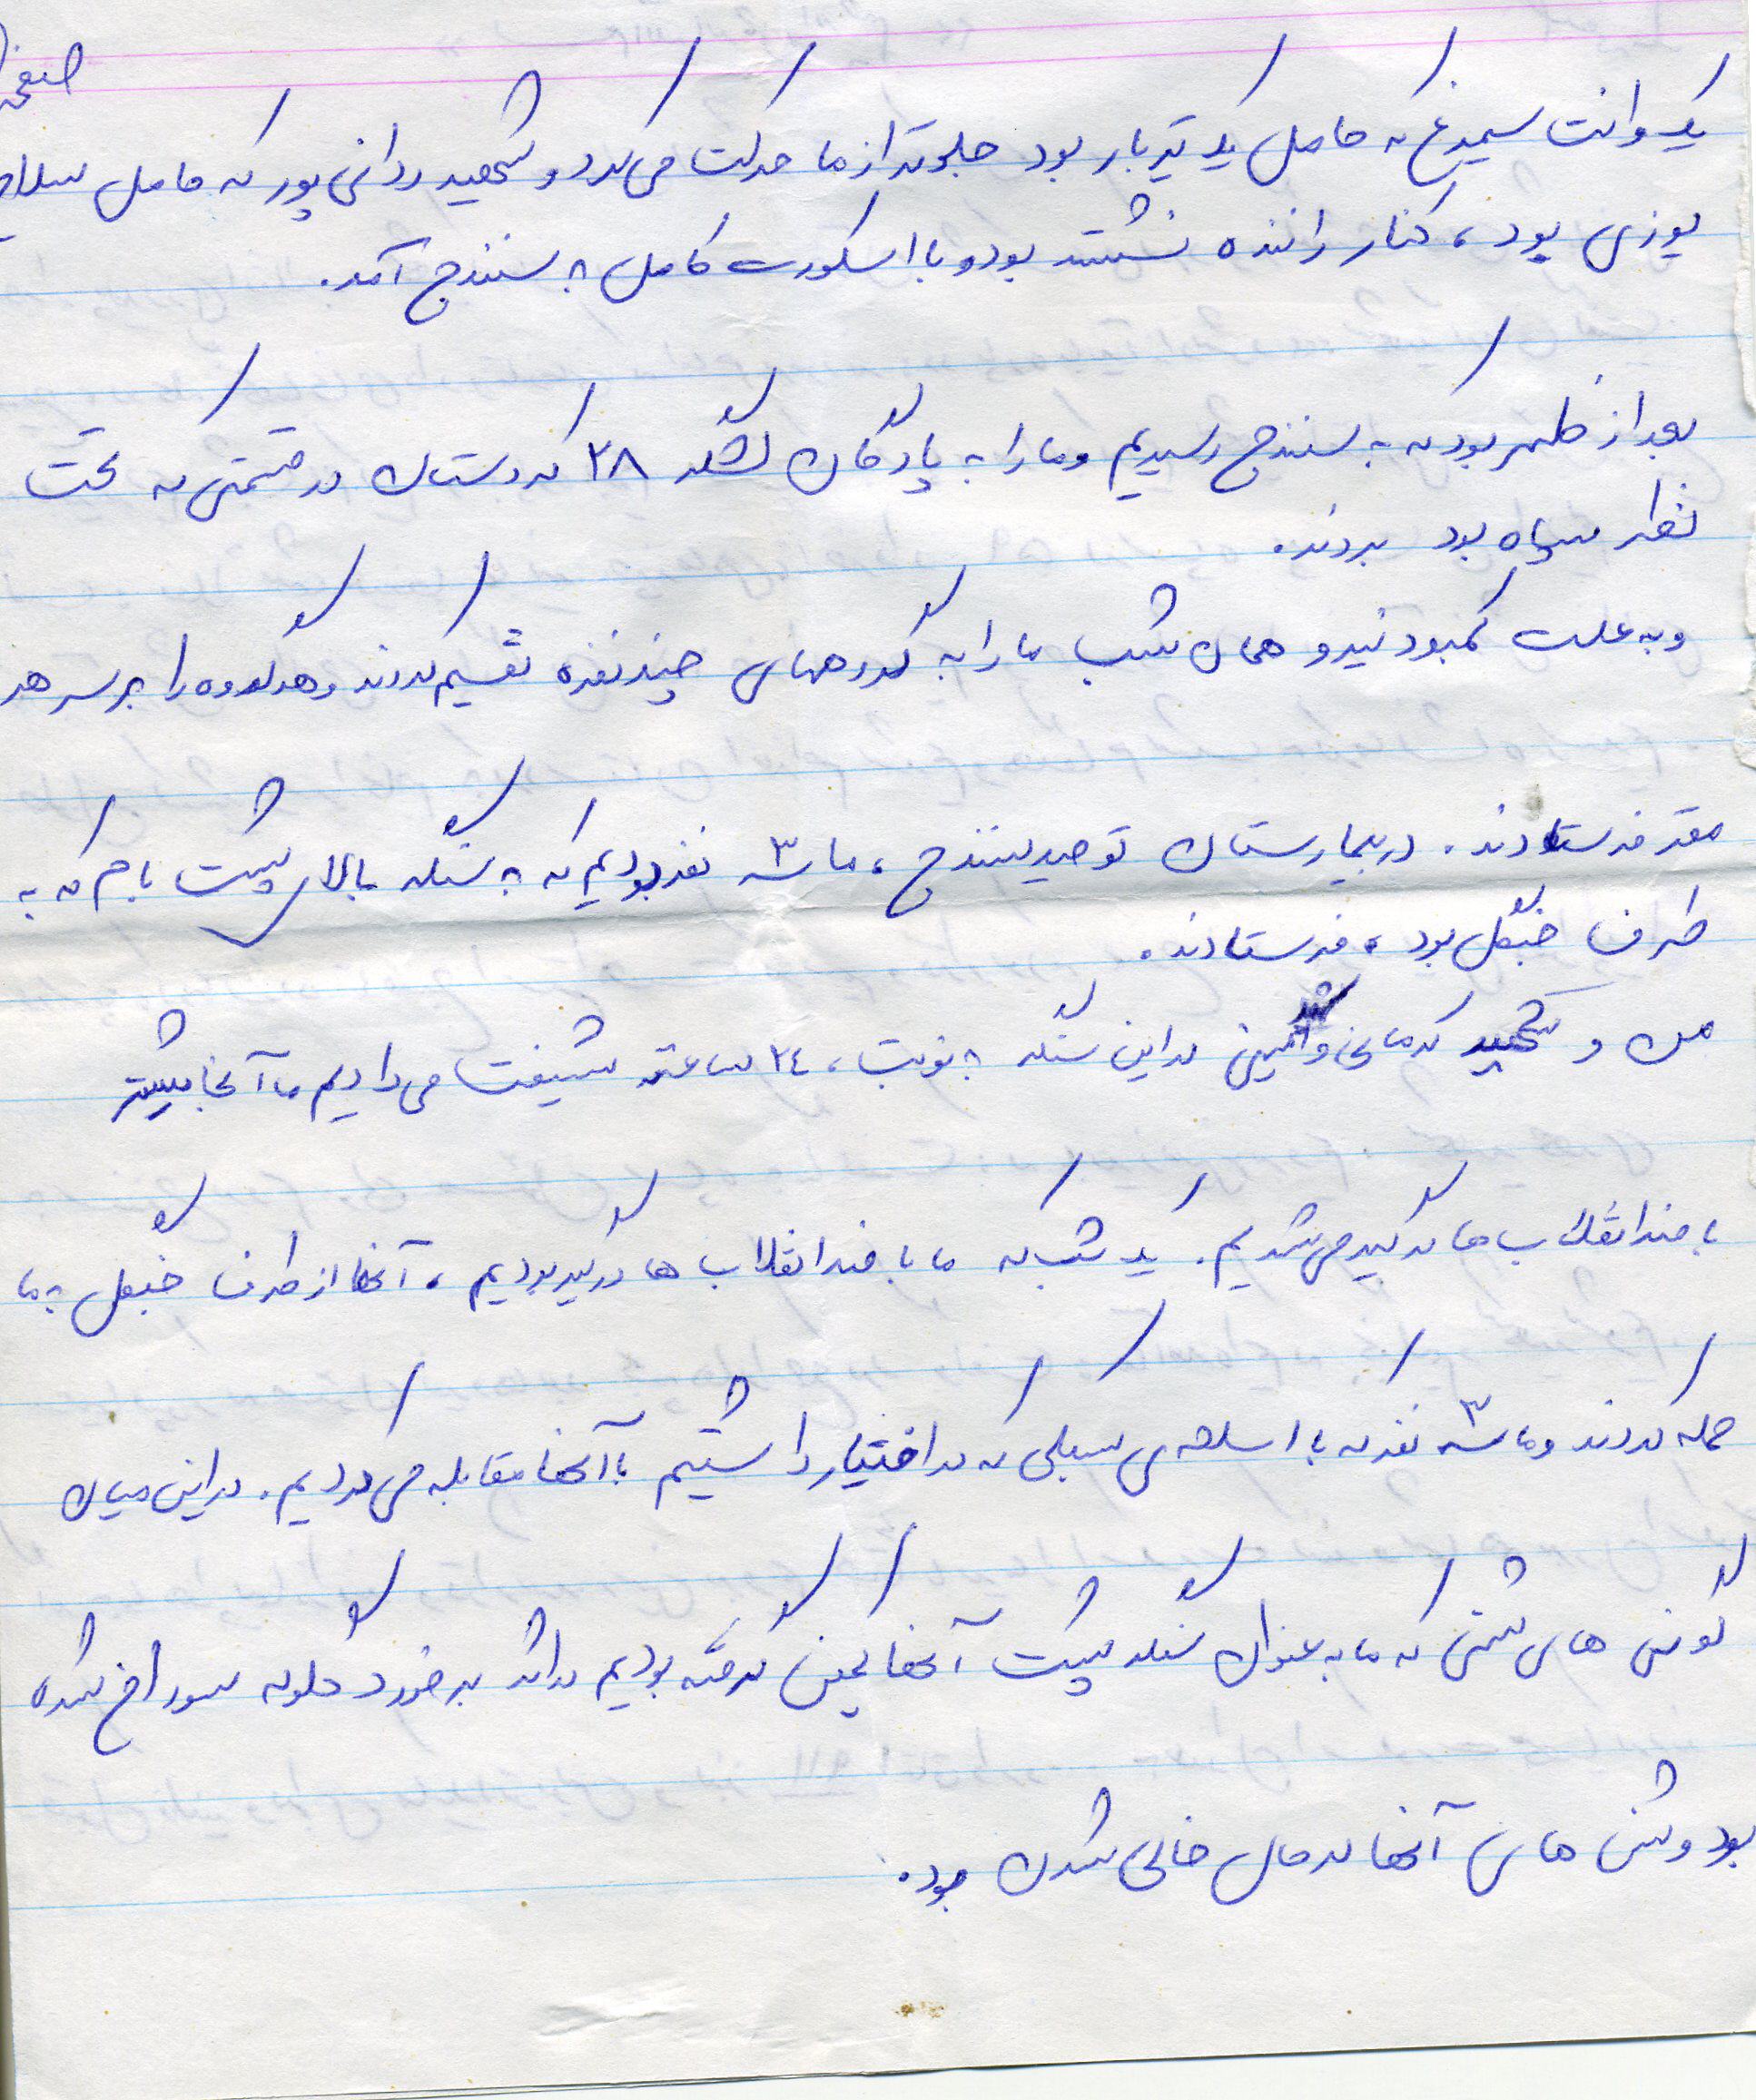 صفحه
یک وانت سیمرغ که حامل یک تیربار بود جلوتر از ما حرکت می‌کرد و شهید ردانی پور که حامل سلاح
یوزی بود، کنار راننده نشسته بود و با اسکورت کامل به سنندج آمد.
بعد از ظهر بود که به سنندج رسیدیم و ما را به پادگان لشگر ۲۸ کردستان در قسمتی که تحت
نظر سپاه بود بردند.
و به علت کمبود نیرو همان شب ما را به گروههای چند نفره تقسیم کردند و هر گروه را بر سر هر
مقر فرستادند. در بیمارستان توحید سنندج، ما سه ۳ نفر بودیم که به سنگر بالای پشت بام که به
طرف جنگل بود، فرستادند.
من و شهید کرمانی و امینی در این سنگر به نوبت، ۲۴ ساعته شیفت می‌دادیم ما آنجا بیشتر
با ضد انقلاب ها درگیر می‌شدیم. یک شب که ما با ضد انقلاب ها درگیر بودیم، آنها از طرف جنگل به ما
حمله کردند و ما سه ۳ نفر که با اسلحه ی سبکی که در اختیار داشتیم با آنها مقابله می‌کردیم. در این میان
گونی های شنی که ما به عنوان سنگر پشت آنها کمین گرفته بودیم در اثر برخورد گلوله سوراخ شده
بود و شن های آنها در حال خالی شدن بود.